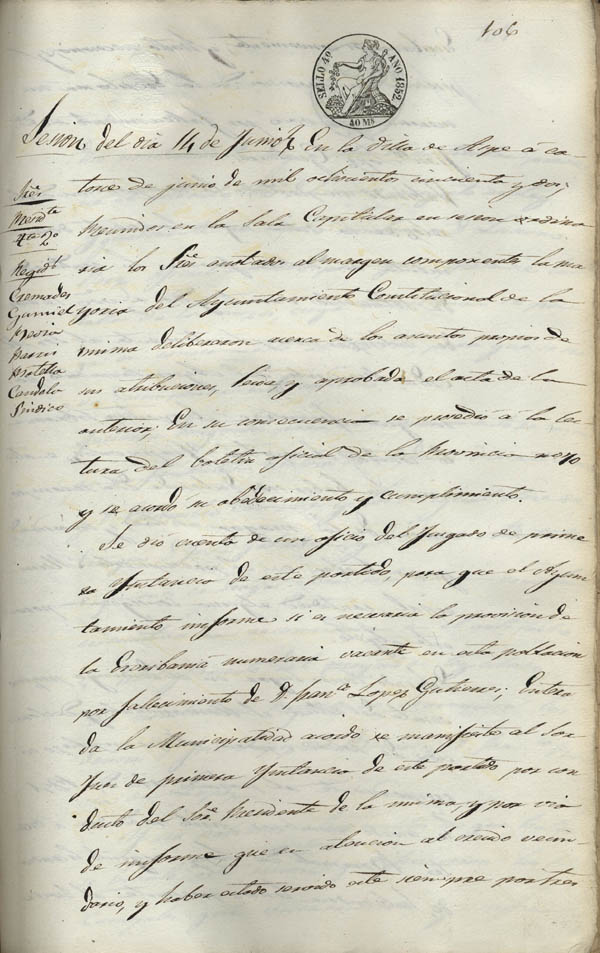 106
SELLO 4º AÑO 1852
40 Ms
Sesion del dia 14 de Junio
En la Villa de Aspe á ca-
torce de junio de mil ochocientos cincuenta y dos;
Reunidos en la Sala Capitular en sesion ordina
ria los Sres anotados al margen componentes la ma
yoria del Ayuntamiento Constitucional de la
misma deliberaron acerca de los asuntos propios de
sus atribuciones, leida y aprobada el acta de la
anterior; En su consecuencia se procedió á la lec
tura del boletin oficial de la Provincia nº 70
y se acordó su obedecimiento y cumplimiento.
Se dió cuenta de un oficio del Juzgado de prime
ra Ynstancia de este partido, para que el Ayun
tamiento informe si es necesaria la provision de
la Escribania numeraria vacante en esta poblacion
por fallecimiento de D. Franco Lopez Gutierrez; Entera
da la Municipalidad acordó se manifieste al Sor
Juez de primera Ynstancia de este partido por con
ducto del Sor Presidente de la misma y por via
de informe que en atencion al crecido vecin-
dario, y haber estado servido este siempre por tres
Sres
Presidte
4te 2º
Regids
Cremades
Gumiel
Botella
Candela
Sindico